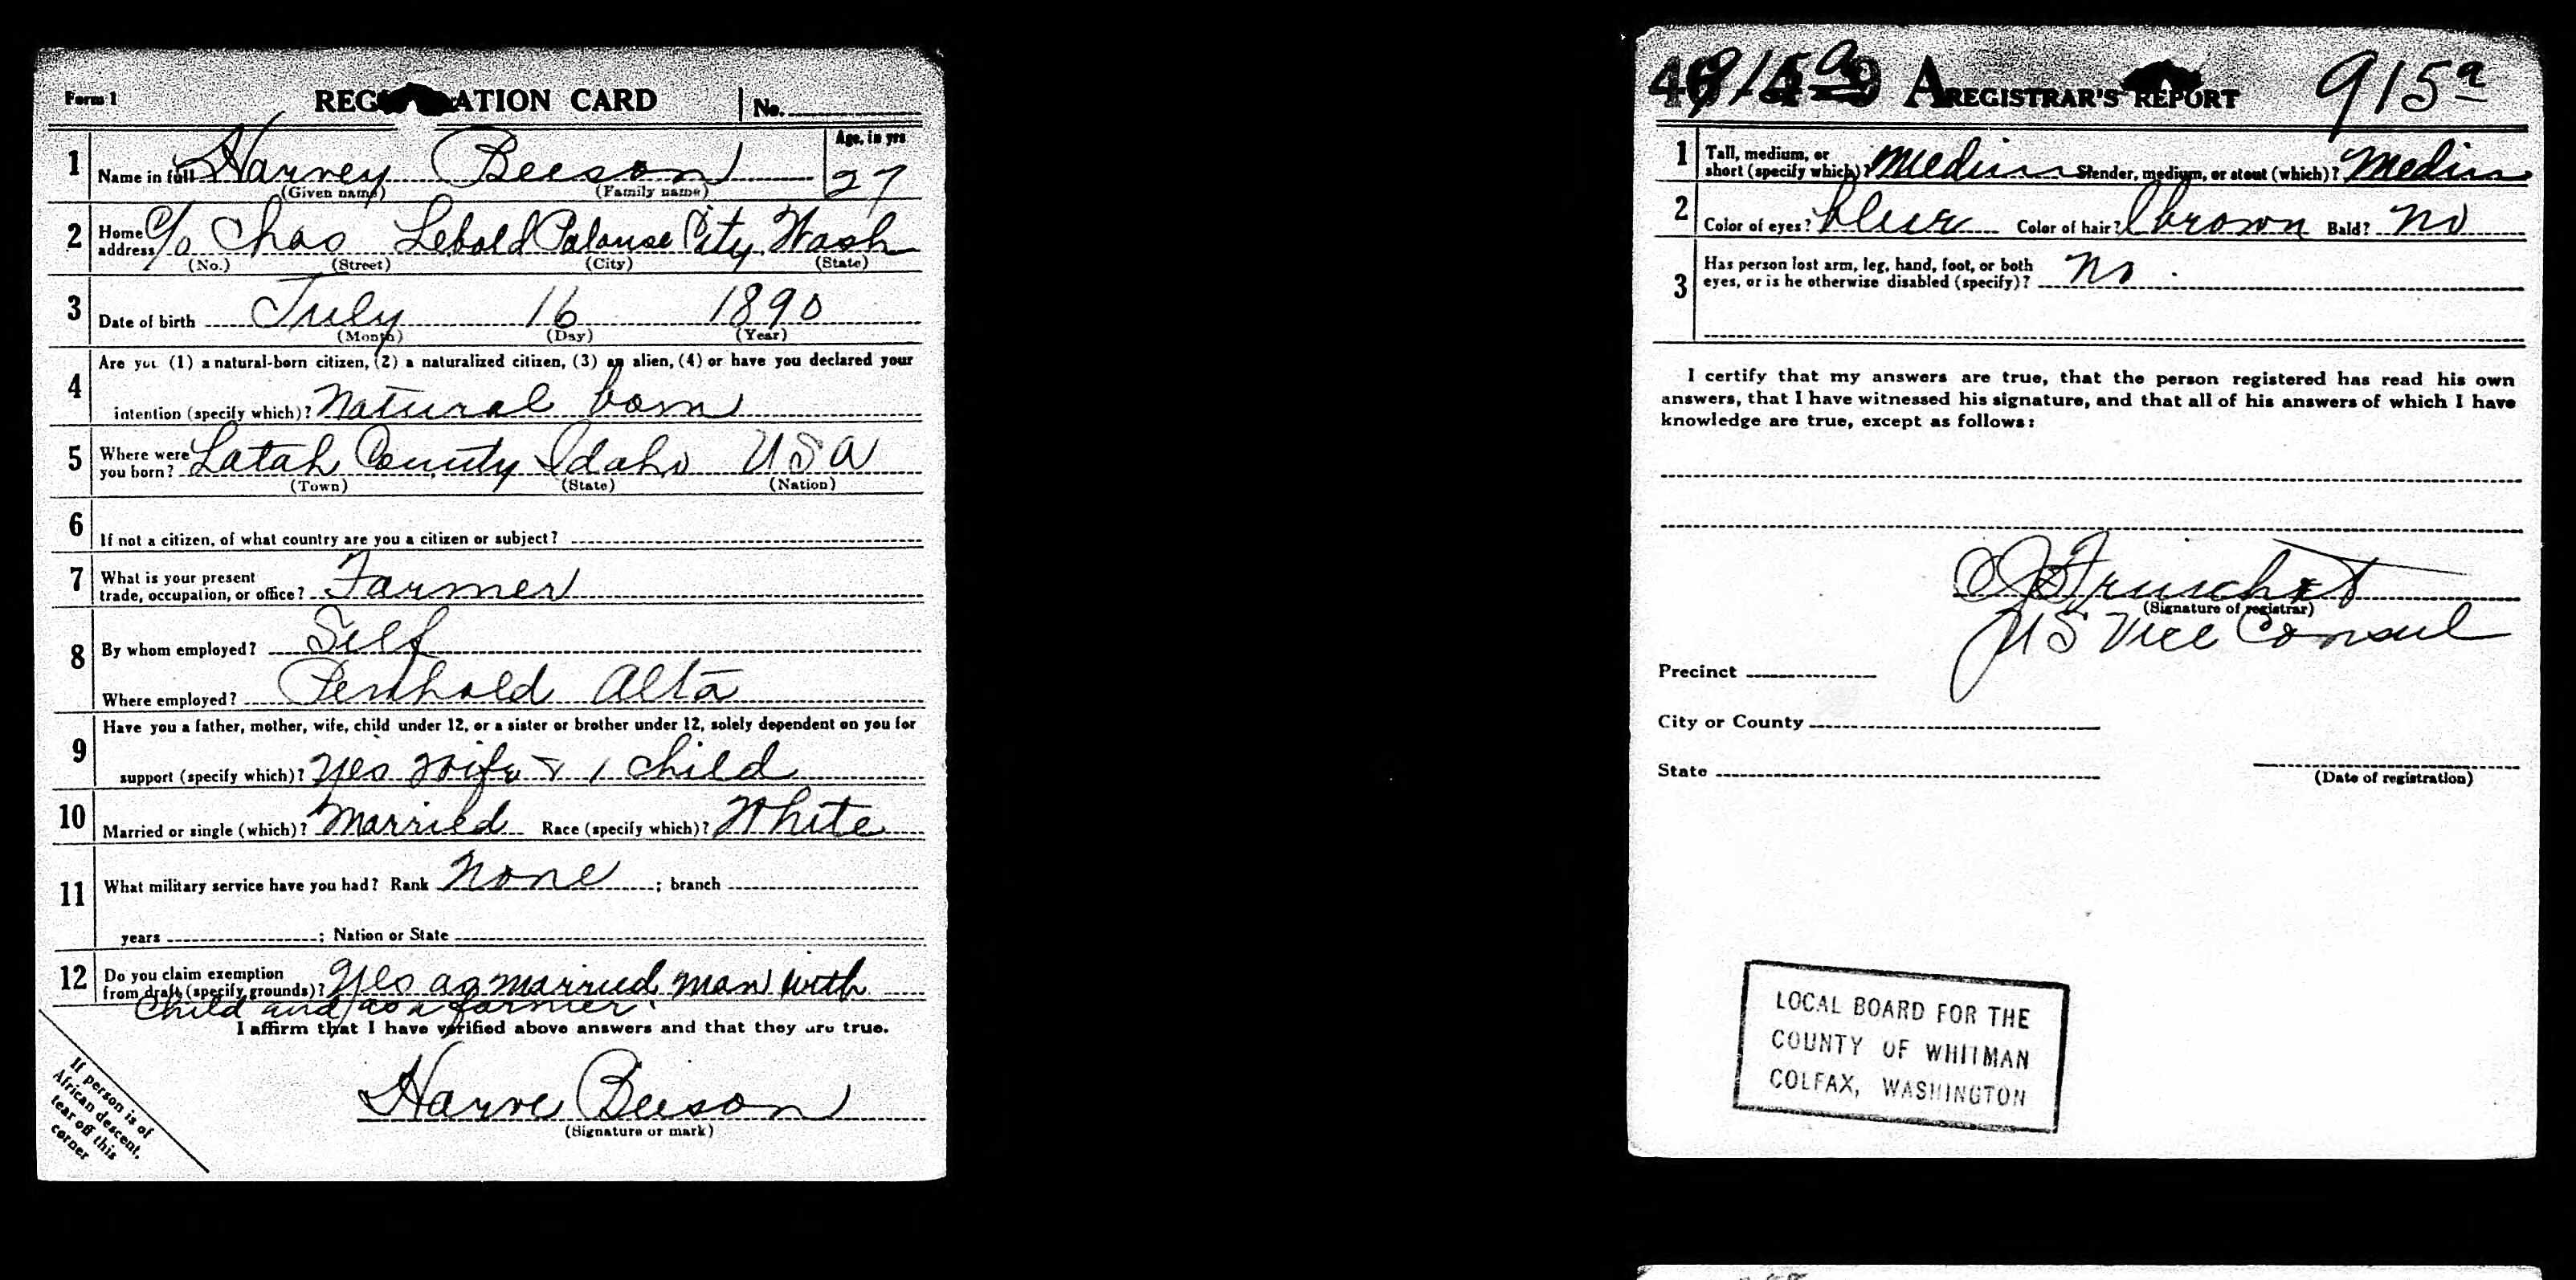 Form 1 REG ATION CARD No.
Age, in yrs
1 Name in full Harvey Beeson 27
(Given name) (Family name)
2 Home address c/o Chas Lebold Palouse City, Wash
(No.) (Street) (City) (State)
3 Date of birth July 16 1890
(Month) (Day) (Year)
4 Are you (1) a natural-born citizen, (2) a naturalized citizen, (3) an alien, (4) or have you declared your
intention (specify which)? Natural born
5 Where were you born? Latah County Idaho USA
(Town) (State) (Nation)
6 If not a citizen, of what country are you a citizen or subject?
7 What is your present
trade, occupation, or office? Farmer
8 By whom employed? Self
Where employed? Penhold Alta
9 Have you a father, mother, wife, child under 12, or a sister or brother under 12, solely dependent on you for
support (specify which)? Yes wife & 1 child
10 Married or single (which)? Married Race (specify which)? White
11 What military service have you had? Rank None ; branch
years ; Nation or State
12 Do you claim exemption
from draft (specify grounds)? Yes as married man with
child and as a farmer.
I affirm that I have verified above answers and that they are true.
Harve Beeson
(Signature or mark)
If person is of
African descent,
tear off this
corner
915a A REGISTRAR'S REPORT 915a
1 Tall, medium, or
short (specify which)? Medium Slender, medium, or stout (which)? Medium
2 Color of eyes? blue Color of hair? brown Bald? No
3 Has person lost arm, leg, hand, foot, or both
eyes, or is he otherwise disabled (specify)? No
I certify that my answers are true, that the person registered has read his own
answers, that I have witnessed his signature, and that all of his answers of which I have
knowledge are true, except as follows:
(Signature of registrar)
US Vice Consul
Precinct
City or County
State
(Date of registration)
LOCAL BOARD FOR THE
COUNTY OF WHITMAN
COLFAX, WASHINGTON